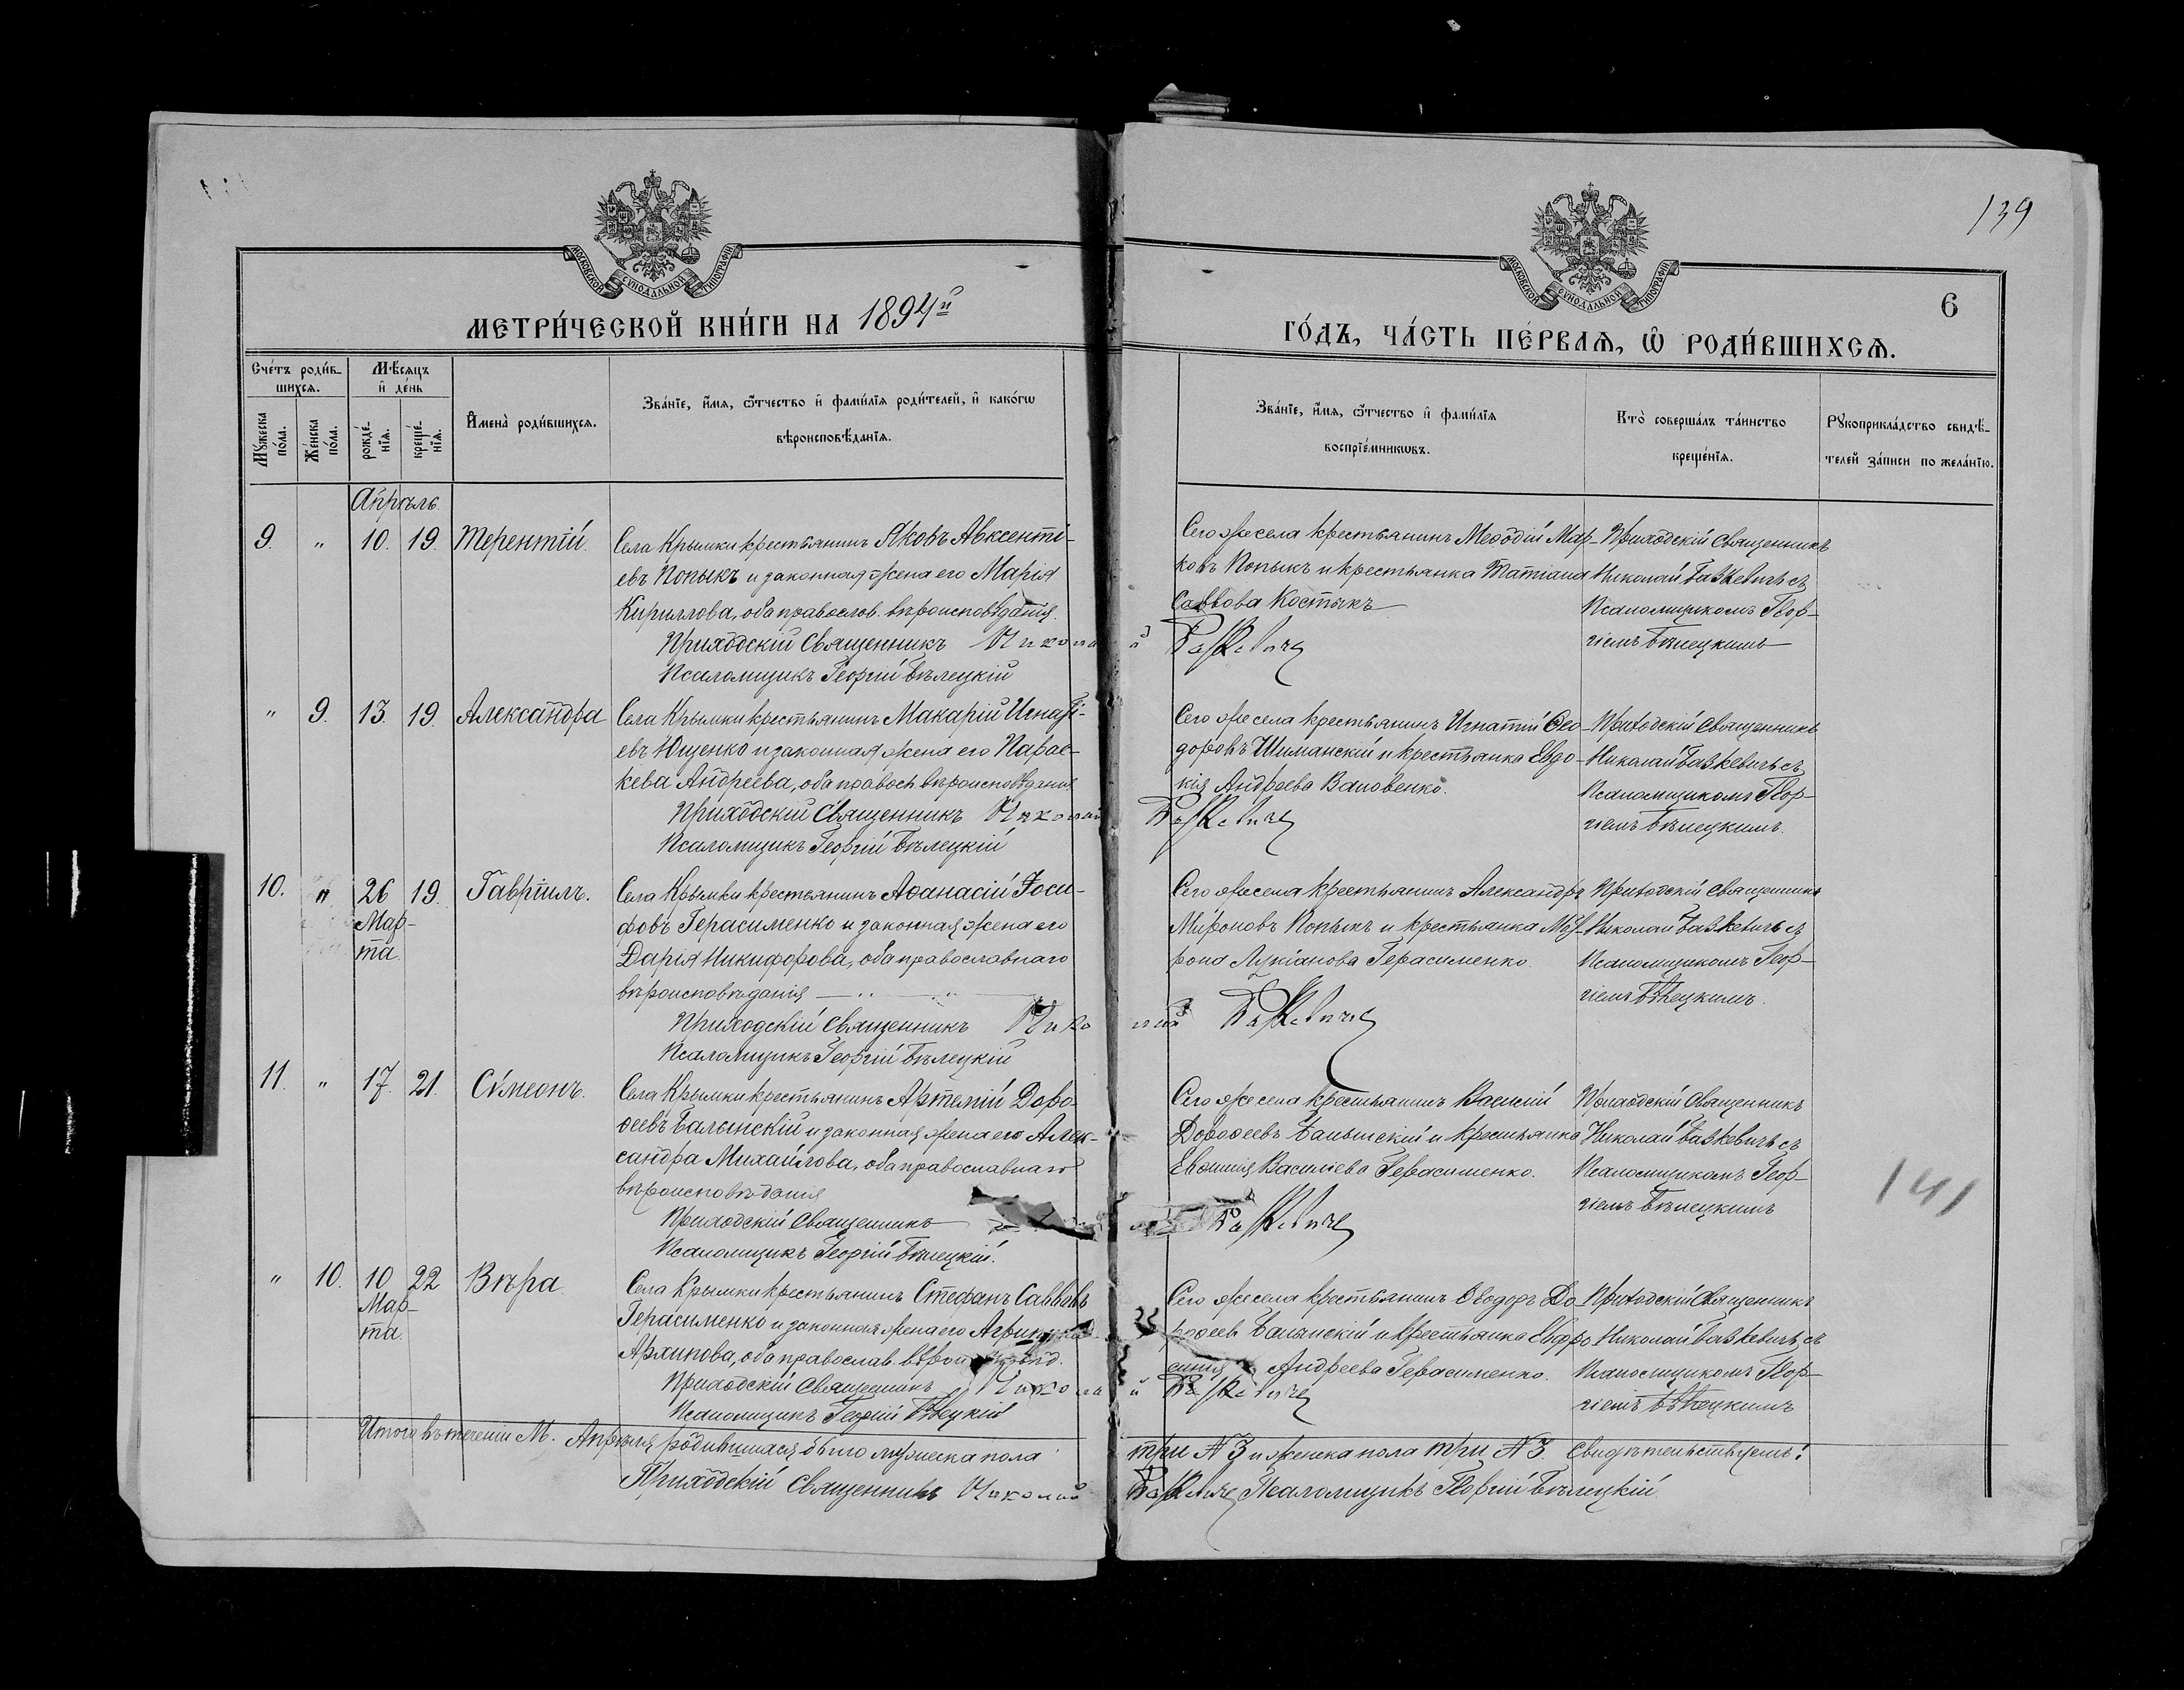 139
МОСКОВСКОЙ СѴНОДАЛЬНОЙ ТИПОГРАФІИ
МОСКОВСКОЙ СѴНОДАЛЬНОЙ ТИПОГРАФІИ
6
МЕТРИ́ЧЕСКОЙ КНИ́ГИ НА 1894й
ГО́ДЪ, ЧА́СТЬ ПЕ́РВАѦ, Ѿ РОДИ́ВШИХСѦ.
Сче́тъ роди́в-
шихсѧ.
Мѣ́сѧцъ
и҆ де́нь
Мꙋ́жеска
по́ла.
Же́нска
по́ла.
рожде́-
нїѧ.
креще́-
нїѧ.
И҆мена̀ роди́вшихсѧ.
Зва́нїе, и҆́мѧ, ѻ҆́тчество и҆ фами́лїѧ роди́телей, и҆ како́гѡ
вѣроисповѣ́данїѧ.
Зва́нїе, и҆́мѧ, ѻ҆́тчество и҆ фами́лїѧ
воспрїе́мникѡвъ.
Кто̀ соверша́лъ та́инство
креще́нїѧ.
Рꙋкоприкла́дство свидѣ́-
телей за́писи по жела́нїю.
Апрѣль.
9. " 10. 19. Терентій.
Села Крымки крестьянинъ Яковъ Авксенті-
евъ Попыкъ и законная жена его Марія
Кириллова, оба православ. вѣроисповѣданія.
Приходскій Священникъ Николай Базкевичъ
Псаломщикъ Георгій Бѣлецкій
Сего же села крестьянинъ Меѳодій Мар-
ковъ Попыкъ и крестьянка Татіана
Саввова Костыкъ
Приходскій Священникъ
Николай Базкевичъ съ
Псаломщикомъ Геор-
гіемъ Бѣлецкимъ
" 9. 13. 19. Александра
Села Крымки крестьянинъ Макарій Игнаті-
евъ Ющенко и законная жена его Парас-
кева Андреева, оба правосл. вѣроисповѣданія
Приходскій Священникъ Николай Базкевичъ
Псаломщикъ Георгій Бѣлецкій
Сего же села крестьянинъ Игнатій Ѳео-
доровъ Шиманскій и крестьянка Евдо-
кія Андреева
Приходскій Священникъ
Николай Базкевичъ съ
Псаломщикомъ Геор-
гіемъ Бѣлецкимъ.
10. " 26 19. Гавріилъ.
Мар-
та.
Села Крымки крестьянинъ Аѳанасій Іоси-
фовъ Герасименко и законная жена его
Дарія Никифорова, оба православнаго
вѣроисповѣданія
Приходскій Священникъ Николай Базкевичъ
Псаломщикъ Георгій Бѣлецкій
Сего же села крестьянинъ Александръ
Мироновъ Попыкъ и крестьянка Мат-
рона Лукіанова Герасименко.
Приходскій Священникъ
Николай Базкевичъ съ
Псаломщикомъ Геор-
гіемъ Бѣлецкимъ.
11. " 17. 21. Сѵмеонъ.
Села Крымки крестьянинъ Артемій Доро-
ѳеевъ Балынскій и законная жена его Алек-
сандра Михайлова, оба православнаго
вѣроисповѣданія
Приходскій Священникъ Базкевичъ
Псаломщикъ Георгій Бѣлецкій.
Сего же села крестьянинъ Василій
Дороѳеевъ Балынскій и крестьянка
Евѳимія Василіева Герасименко.
Приходскій Священникъ
Николай Базкевичъ съ
Псаломщикомъ Геор-
гіемъ Бѣлецкимъ
141
" 10. 10 22 Вѣра.
Мар-
та.
Села Крымки крестьянинъ Стефанъ Саввовъ
Герасименко и законная жена его
Архипова, оба православ.
Приходскій Священникъ Николай Базкевичъ
Псаломщикъ Георгій Бѣлецкій
Сего же села крестьянинъ Ѳеодоръ До-
роѳеевъ Балынскій и крестьянка Евфро
синія Андреева Герасименко.
Приходскій Священникъ
Николай Базкевичъ съ
Псаломщикомъ Геор-
гіемъ Бѣлецкимъ
Итого въ теченіи М. Апрѣля родившихся было мужеска пола три № 3 и женска пола три № 3. Свидѣтельствуемъ:
Приходскій Священникъ Николай Базкевичъ Псаломщикъ Георгій Бѣлецкій